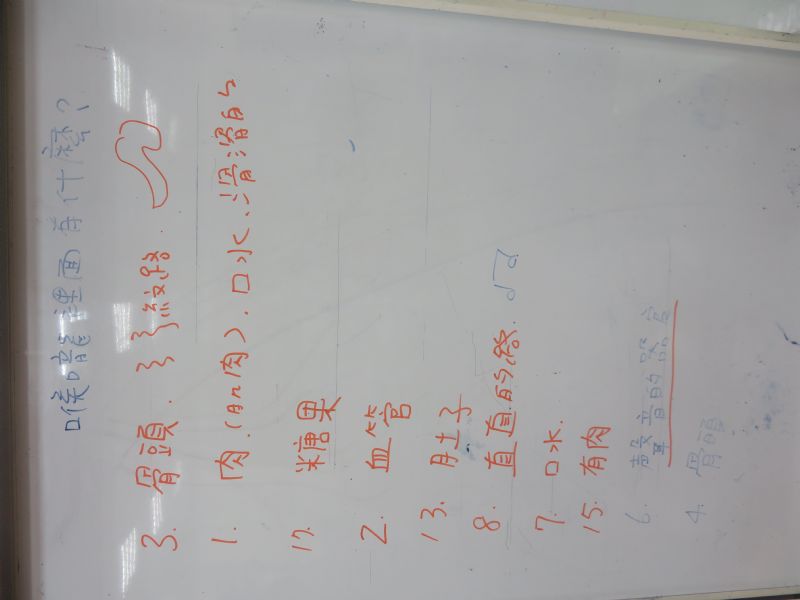 喉嚨裡面有什麼?
3. 骨頭. 紋路.
1. 肉.(ABn肉). 口水. 滑滑的
17. 糖果
2. 血管
13. 肚子
8. 直直的路.
7. 口水.
15. 有肉
6. 聲音的器官
4. 骨頭